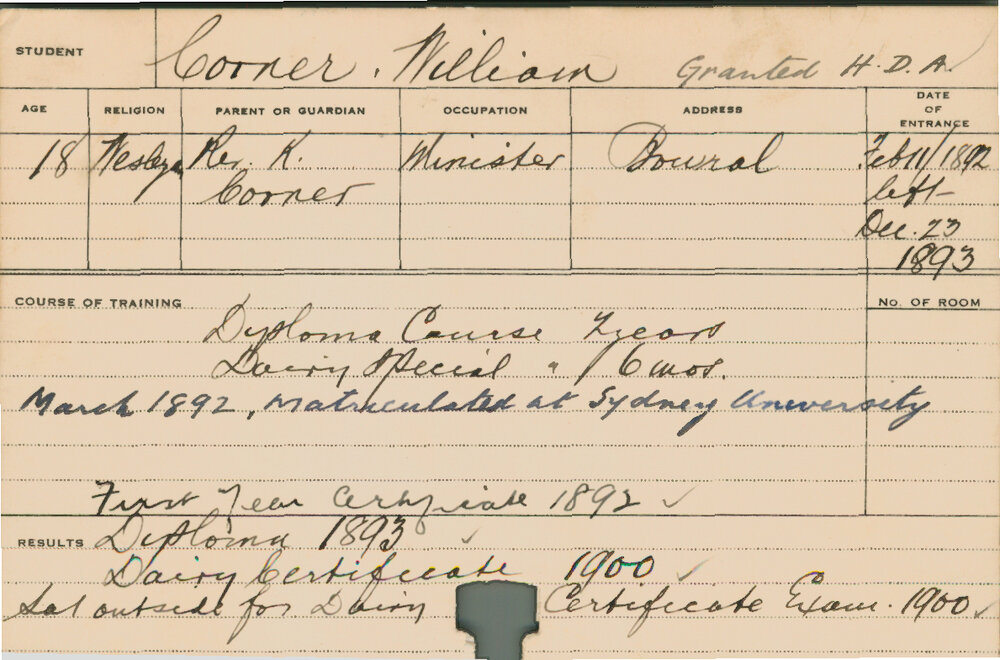 STUDENT Corner, William Granted H.D.A.
AGE RELIGION PARENT OR GUARDIAN OCCUPATION ADDRESS DATE OF ENTRANCE
18 Wesleyn Rev. K. Corner Minister Bowral Feb 11/1892
left
Dec. 23
1893
COURSE OF TRAINING No. OF ROOM
Diploma Course 2 years
Dairy Special " 6 mos.
March 1892, Matriculated at Sydney University
First Year Certificate 1892 ✓
RESULTS Diploma 1893 ✓
Dairy Certificate 1900 ✓
Sat outside for Dairy Certificate Exam. 1900 ✓